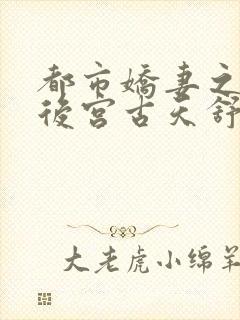 都市嬌妻之
後宮古天舒
大老虎小绵羊